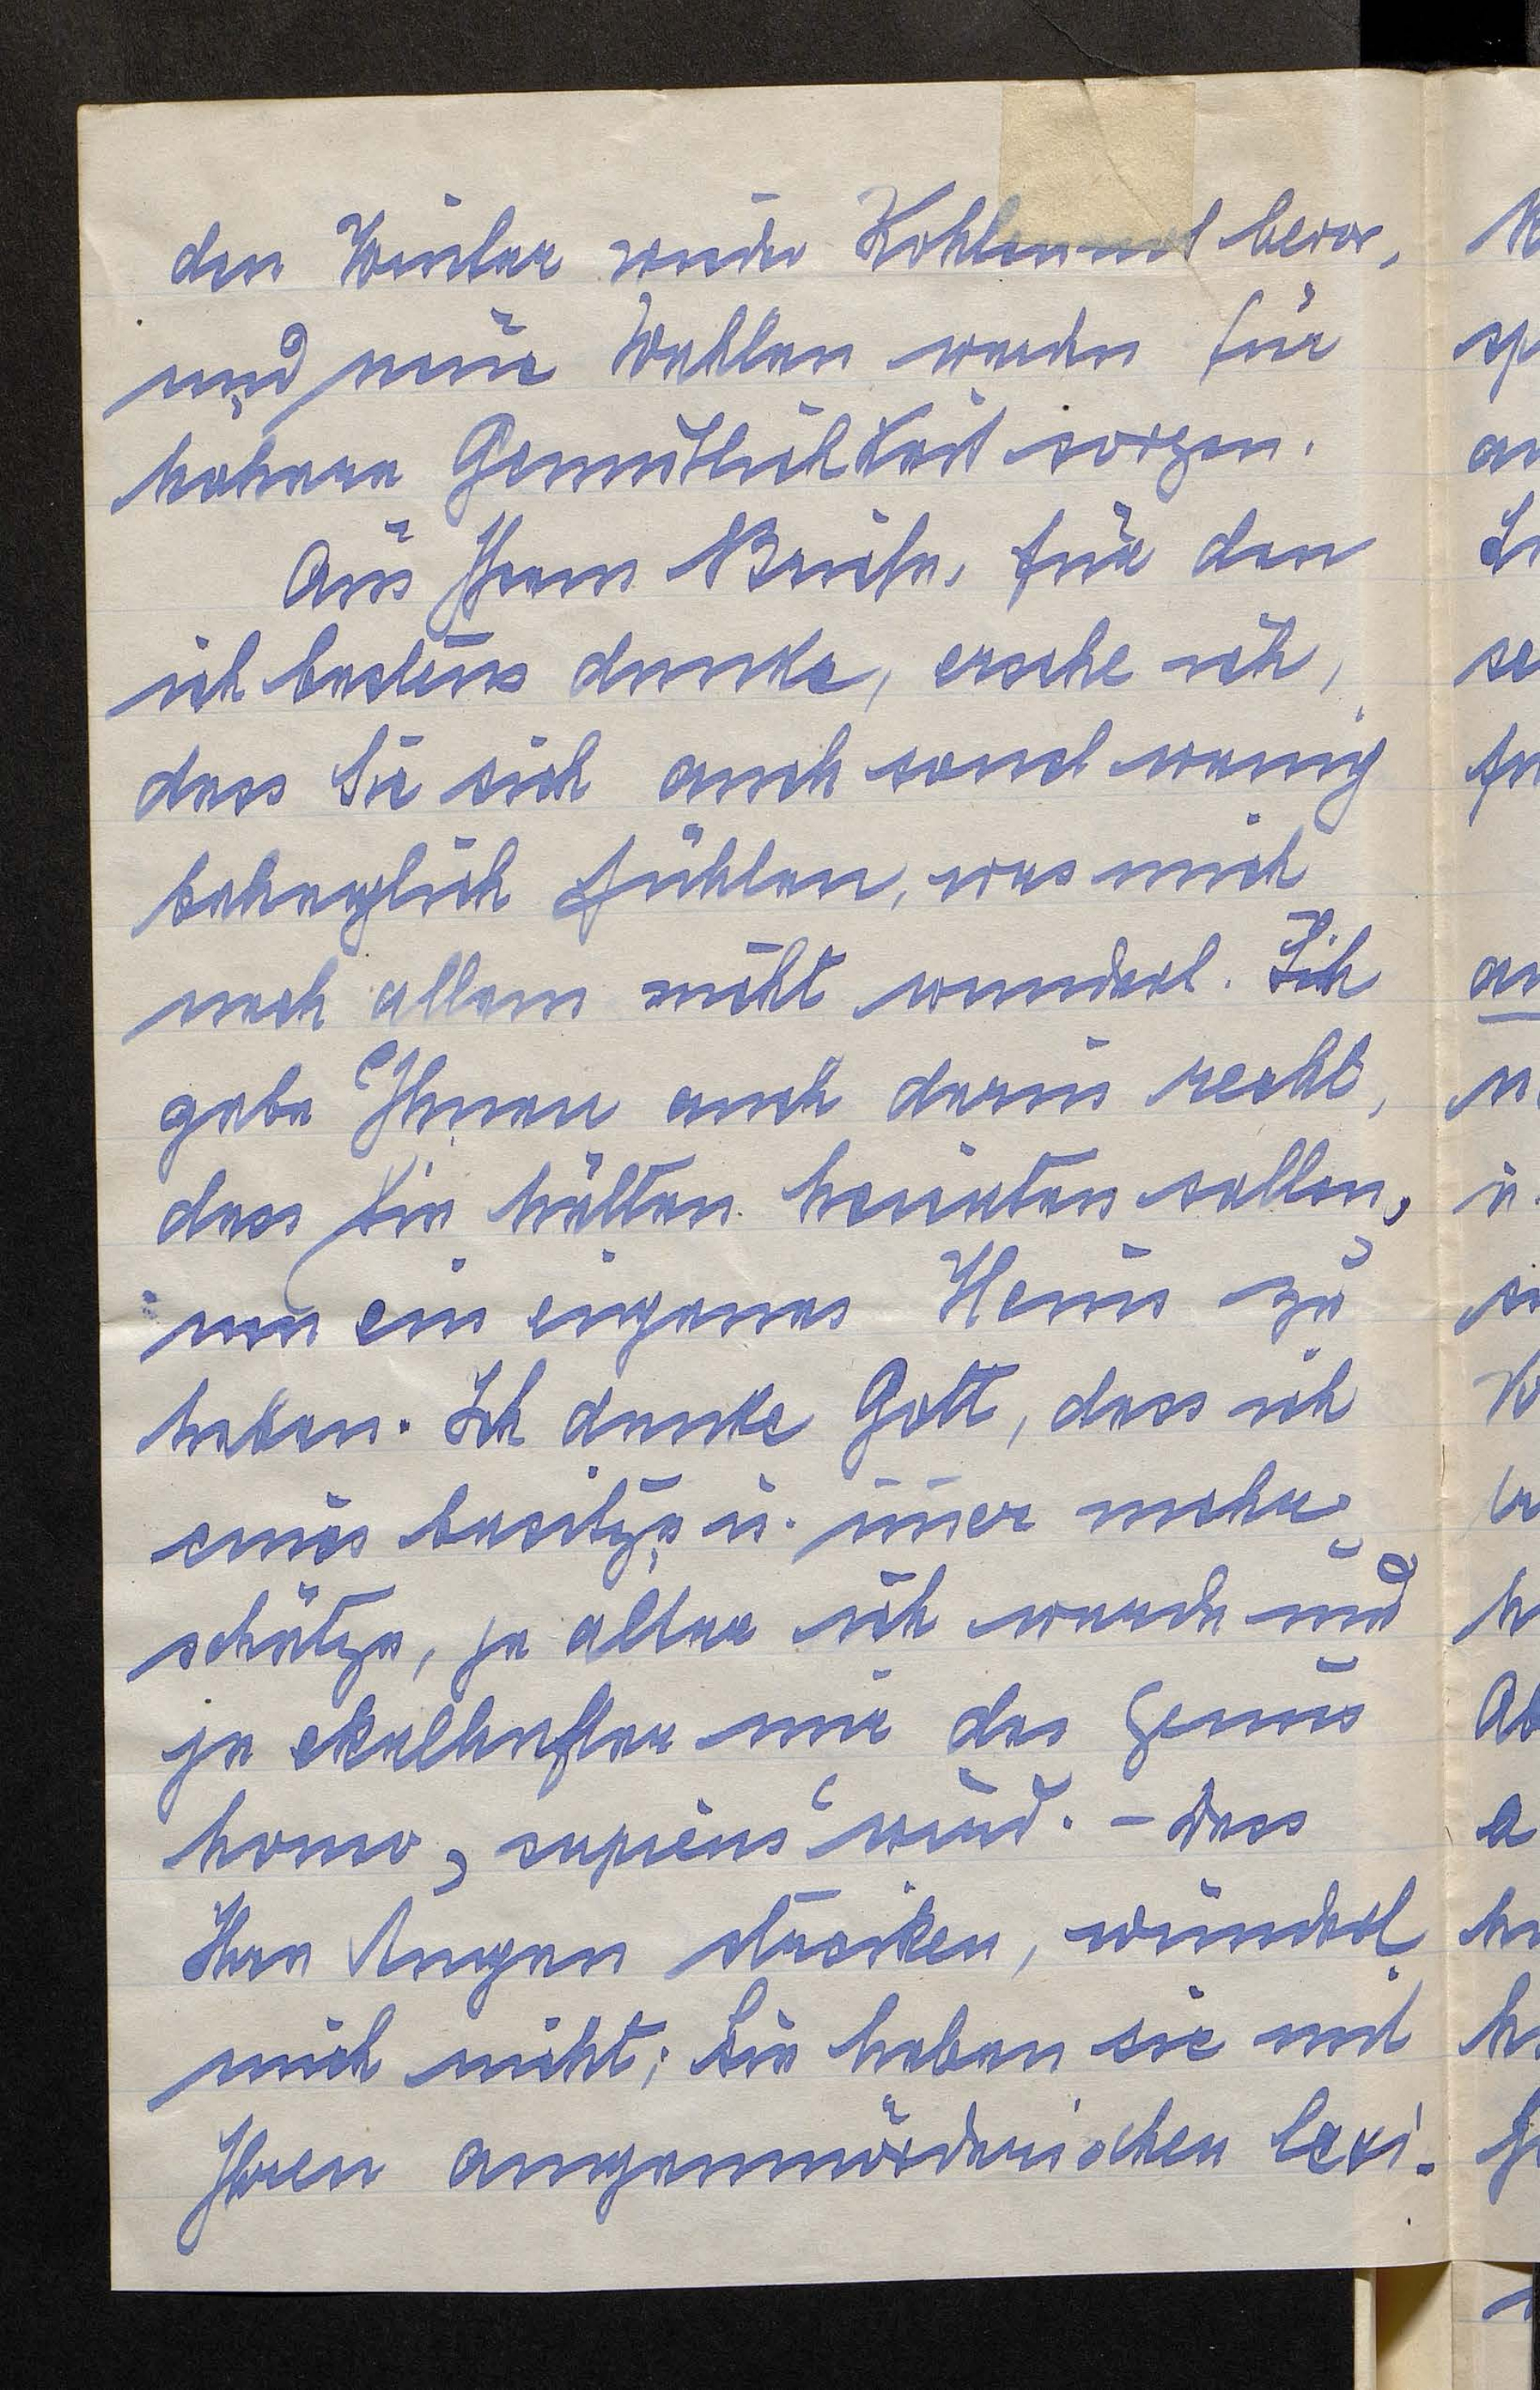 den Winter wieder Kohlennot bevor,
und neue Wahlen werden für
höhere Gemütlichkeit sorgen.
Aus Ihrem Briefe, für den
ich bestens danke, ersehe ich,
dass Sie sich auch sonst wenig
behaglich fühlen, was mich
nach allem nicht wundert. Ich
gebe Ihnen auch darin recht,
dass Sie hätten heiraten sollen,
um ein eigenes Heim zu
haben. Ich danke Gott, dass ich
eines besitze u. im̅er mehr
schätze, je älter ich werde und
je ekelhafter mir das Genus
homo „sapiens“ wird. – Dass
Ihre Augen streiken, wundert
mich nicht; Sie haben sie mit
Ihren augenmörderischen lexi-